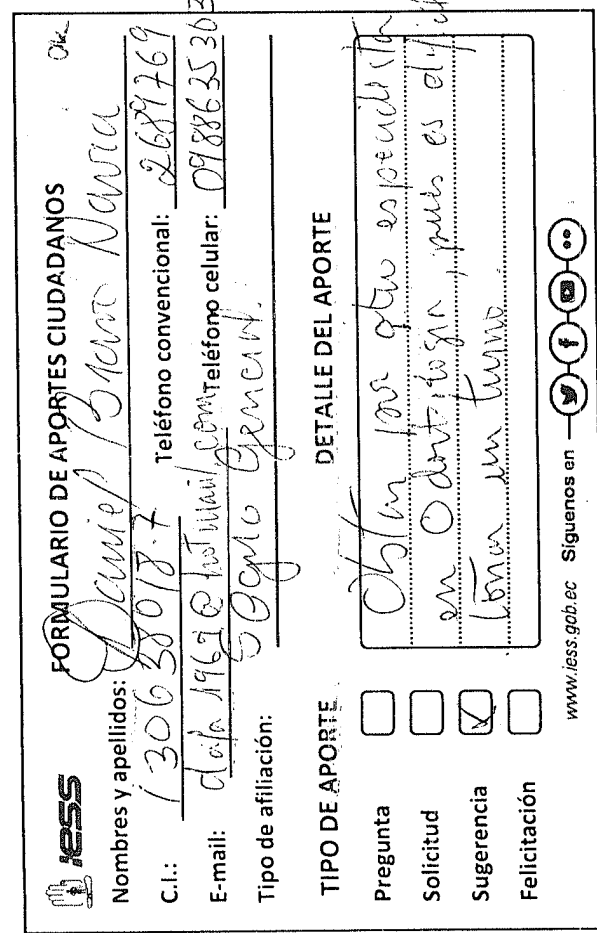 iess
FORMULARIO DE APORTES CIUDADANOS
Nombres y apellidos: Daniel Bravo Navia
C.I.: 130638018-7 Teléfono convencional: 2689769
E-mail: @hotmail.com Teléfono celular:
Tipo de afiliación: Seguro General.
TIPO DE APORTE
Pregunta
Solicitud
Sugerencia
Felicitación
DETALLE DEL APORTE
por otro especialista
en Odontología, pues es
un turno.
www.iess.gob.ec Síguenos en